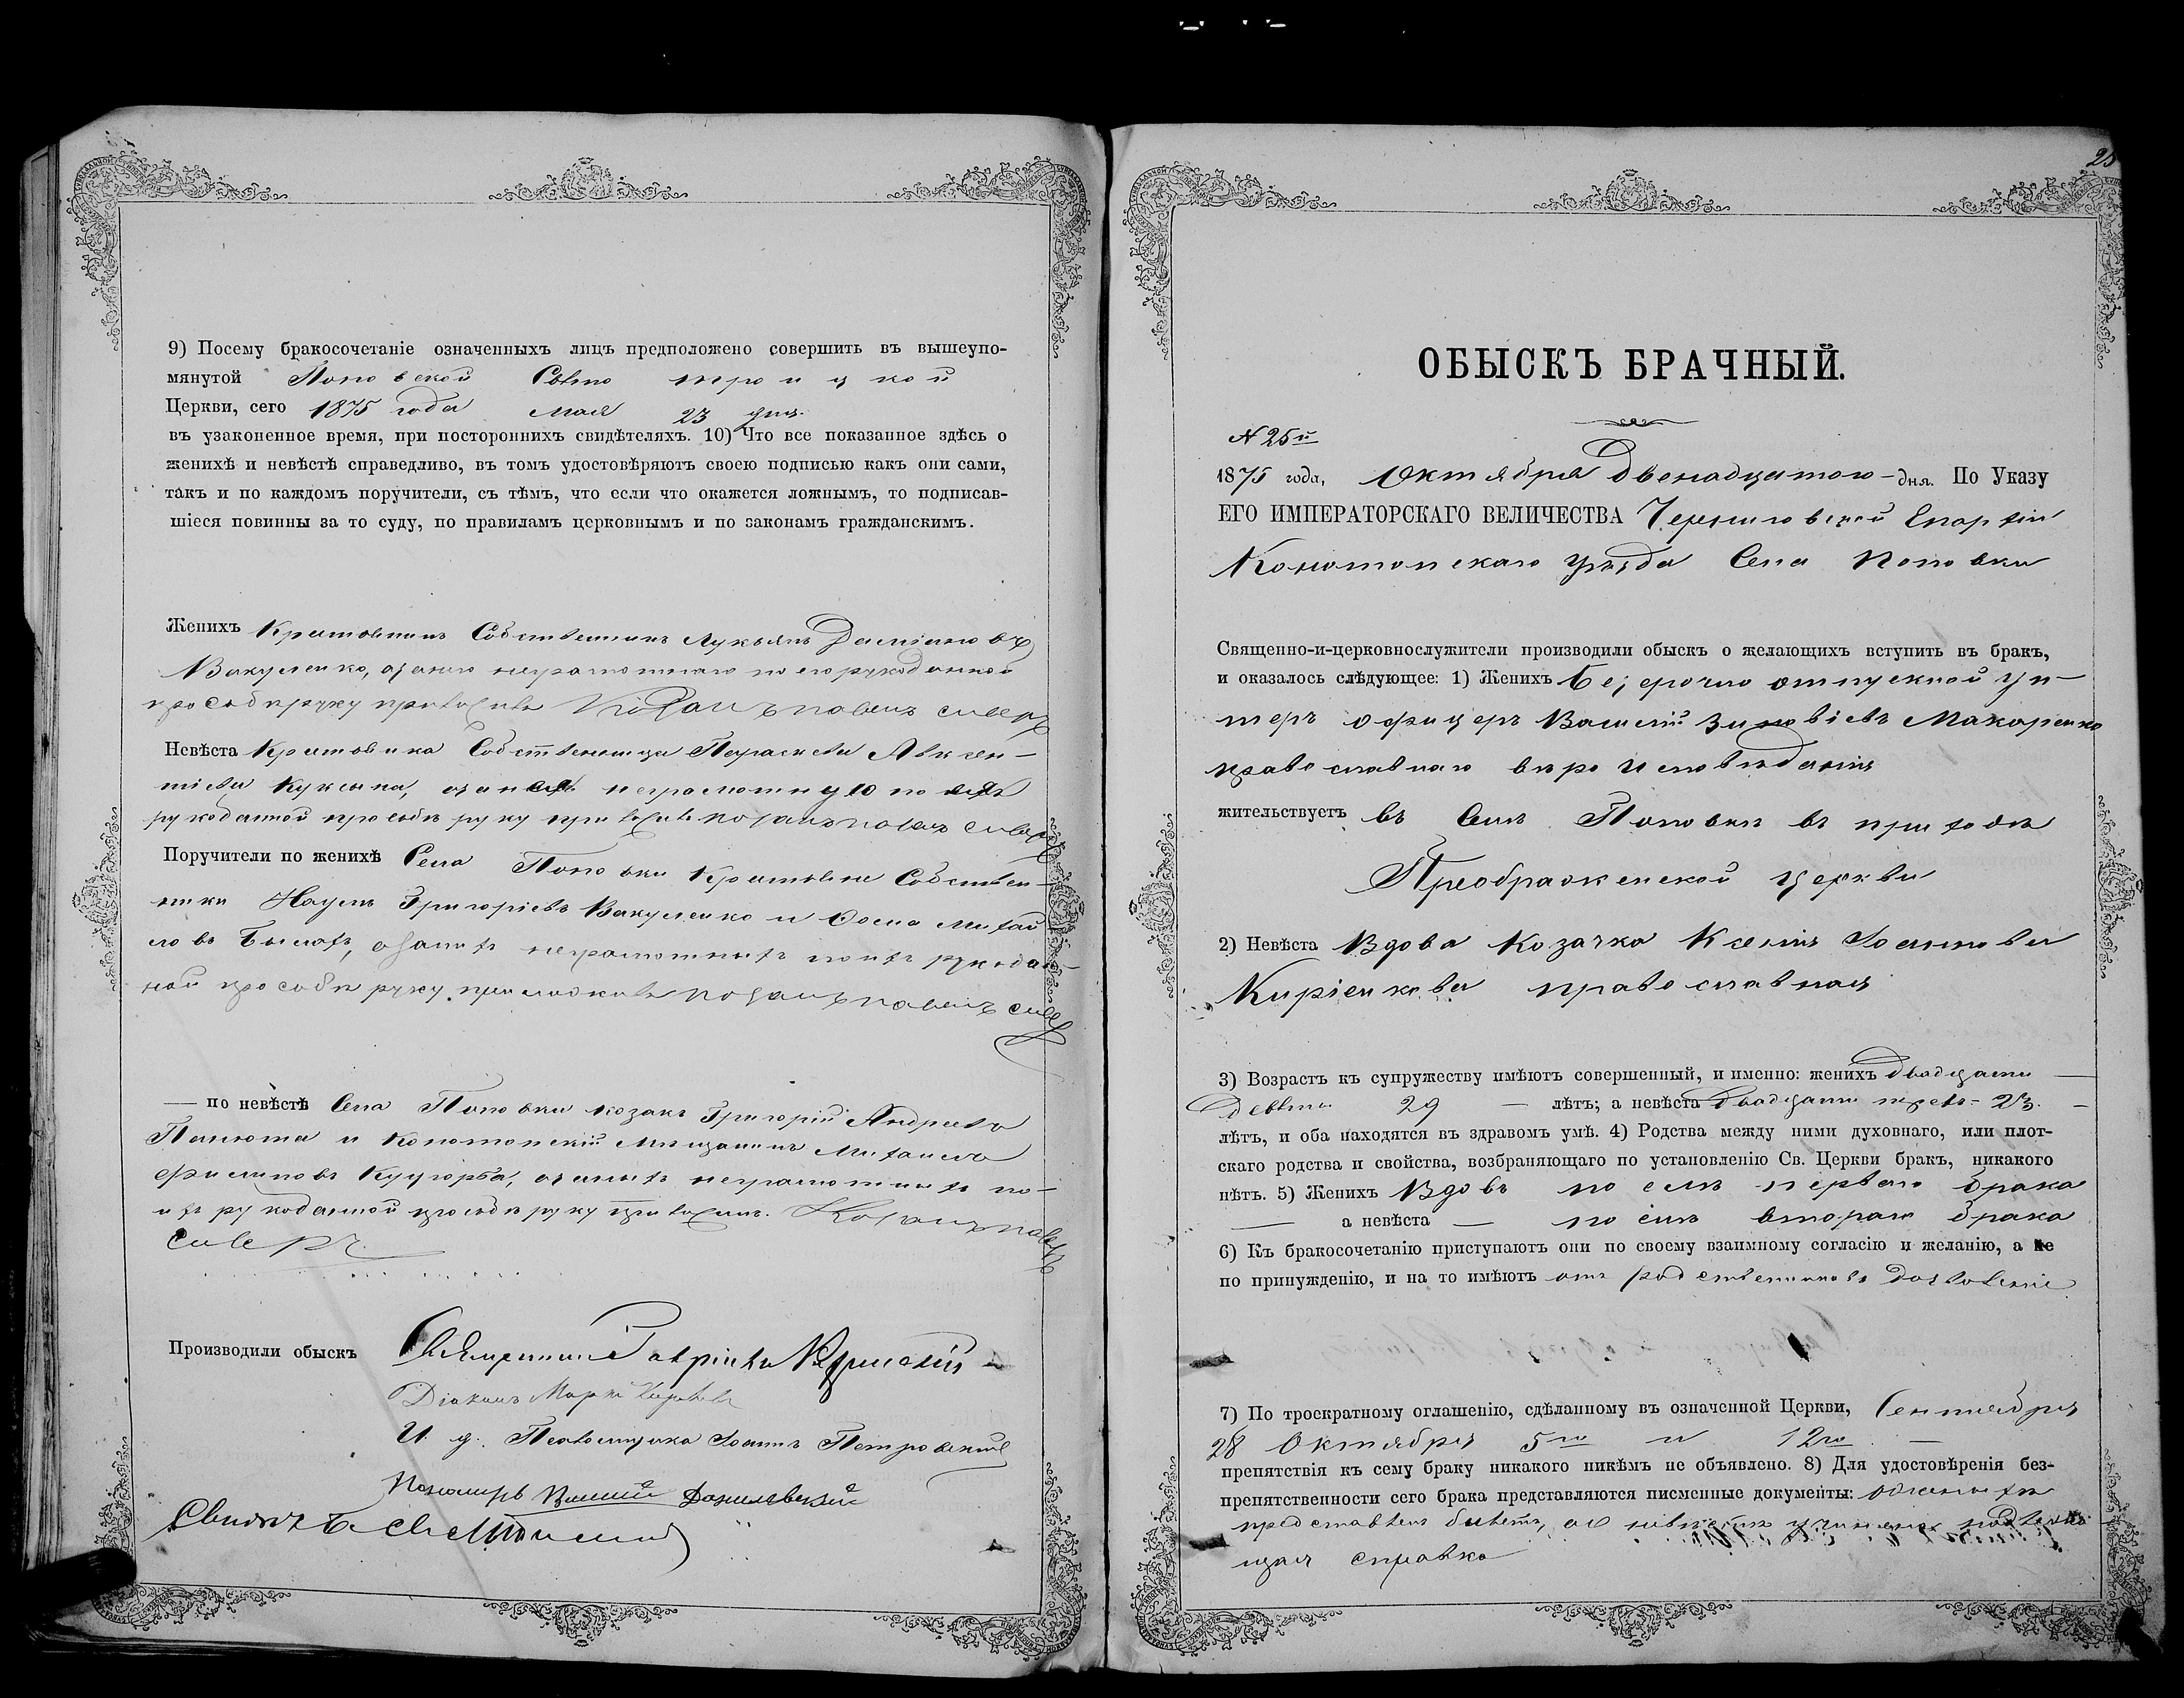 9) Посему бракосочетаніе означенныхъ лицъ предположено совершить въ вышеупо-
мянутой Поповской Свято троицкой
Церкви, сего 1875 года мая 23 дня.
въ узаконенное время, при постороннихъ свидѣтеляхъ. 10) Что все показанное здѣсь о
женихѣ и невѣстѣ справедливо, въ томъ удостовѣряютъ своею подписью какъ они сами,
такъ и по каждомъ поручители, съ тѣмъ, что если что окажется ложнымъ, то подписав-
шіеся повинны за то суду, по правиламъ церковнымъ и по законамъ гражданскимъ.
Женихъ Крестьянинъ Собственникъ Лукьянъ Даміановъ
Вакуленко, а за него неграмотнаго по его рукоданной
просьбѣ руку приложилъ Козакъ павелъ сиверъ
Невѣста Крестьянка Собственница Параскева Авксен-
тіева Куксина, а за нея неграмотную по ея
рукоданной просьбѣ руку приложилъ козакъ павелъ сиверъ
Поручители по женихѣ Села Поповки Крестьяне Собствен-
ники Наумъ Григоріевъ Вакуленко и Ѳома Михай
ловъ а за нихъ неграмотныхъ по ихъ рукодан-
ной просьбѣ руку приложилъ козакъ павелъ сивер
— по невѣстѣ Села Поповки козакъ Григорій Андреевъ
Панюта и Конотопскій Мѣщанинъ Михаилъ
Филиповъ а за нихъ неграмотныхъ по
ихъ рукоданной просьбѣ руку приложилъ. Козакъ павелъ
сиверъ
Производили обыскъ Священникъ Гавріилъ
Діаконъ
И. д. Псаломщика Іоаннъ Петровскій
Пономарь Василій Данилевскій
25
ОБЫСКЪ БРАЧНЫЙ.
N 25й
1875 года, Октября двенадцатого — дня. По Указу
ЕГО ИМПЕРАТОРСКАГО ВЕЛИЧЕСТВА Черниговской Епархіи
Конотопскаго уѣзда Села Поповки
Священно-и-церковнослужители производили обыскъ о желающихъ вступить въ бракъ,
и оказалось слѣдующее: 1) Женихъ безсрочно отпускной Ун-
теръ офицеръ Василій Зиновіевъ Макаренко
православнаго вѣроисповѣданія
жительствуетъ въ Селѣ Поповкѣ въ приходѣ
Преображенской церкви
2) Невѣста Вдова Козачка Ксенія Іоаннова
Киріенкова православная
3) Возрастъ къ супружеству имѣютъ совершенный, и именно: женихъ двадцати —
девяти 29 — лѣтъ; а невѣста двадцати трехъ — 23. —
лѣтъ, и оба находятся въ здравомъ умѣ. 4) Родства между ними духовнаго, или плот-
скаго родства и свойства, возбраняющаго по установленію Св. Церкви бракъ, никакого
нѣтъ. 5) Женихъ Вдовъ послѣ перваго брака
— а невѣста — послѣ втораго брака
6) Къ бракосочетанію приступаютъ они по своему взаимному согласію и желанію, а не
по принужденію, и на то имѣютъ отъ родственниковъ дозволеніе
7) По троекратному оглашенію, сдѣланному въ означенной Церкви, Сентября
28 Октября 5го и 12го —
препятствія къ сему браку никакого никѣмъ не объявлено. 8) Для удостовѣренія без-
препятственности сего брака представляются писменные документы: о женихѣ
представленъ билетъ, а о невѣстѣ учинена надлежа
щая справка